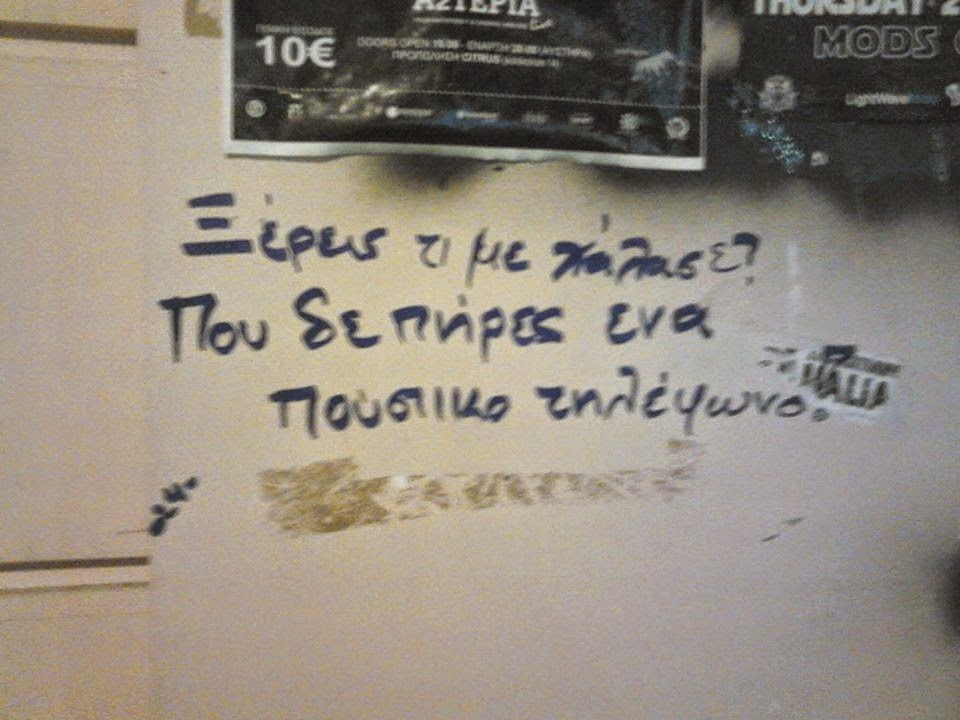 ΑΣΤΕΡΙΑ Live
THURSDAY 2
MODS
10€
DOORS OPEN 19.00 - ΕΝΑΡΞΗ 20.00 (ΑΥΣΤΗΡΑ)
ΠΡΟΠΩΛΗΣΗ CITRUS
LightWave
Ξέρεις τι με χάλασε?
Που δε πήρες ενα
πουστικο τηλέφωνο.